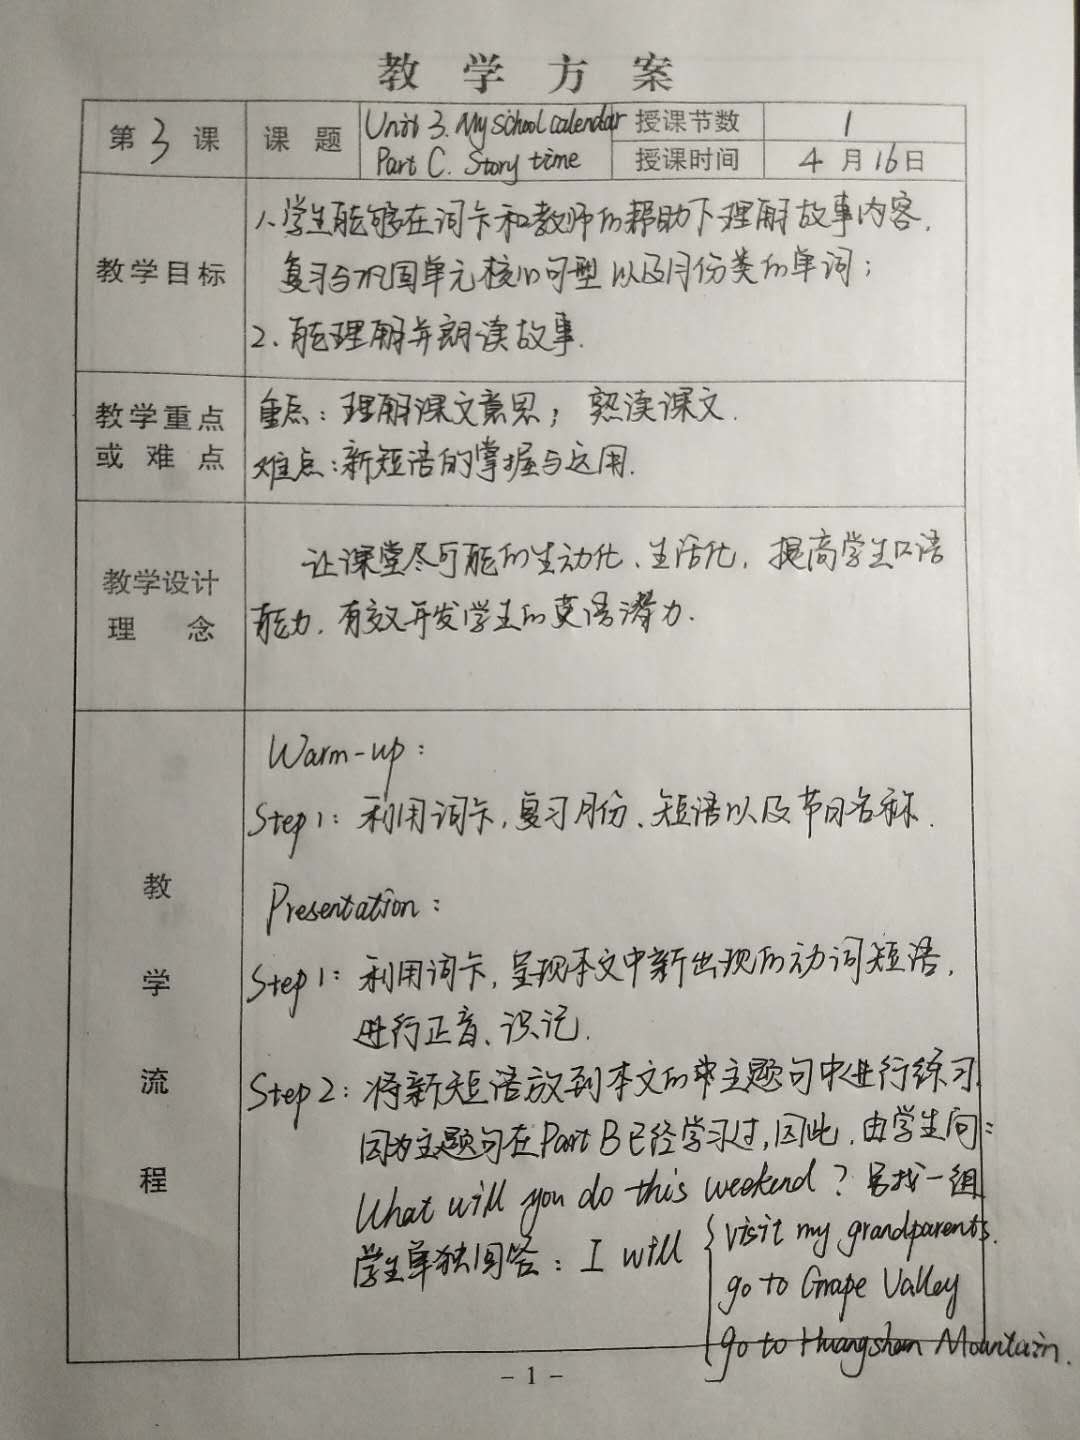 教学方案
第3课 课题 Unit 3. My school calendar 授课节数 1
Part C. Story time 授课时间 4月16日
教学目标
1、学生能够在词卡和教师的帮助下理解故事内容.
复习与巩固单元核心句型以及月份类的单词；
2、能理解并朗读故事.
教学重点
或难点
重点：理解课文意思；熟读课文.
难点：新短语的掌握与运用.
教学设计
理念
让课堂尽可能的生动化、生活化，提高学生口语
能力，有效开发学生的英语潜力.
教学流程
Warm-up：
Step 1：利用词卡，复习月份、短语以及节日名称.
Presentation：
Step 1：利用词卡，呈现本文中新出现的动词短语，
进行正音、识记.
Step 2：将新短语放到本文的主题句中进行练习.
因为主题句在Part B已经学习过，因此，由学生问：
What will you do this weekend？另找一组
学生单独回答：I will { visit my grandparents.
go to Grape Valley
go to Huangshan Mountain.
- 1 -